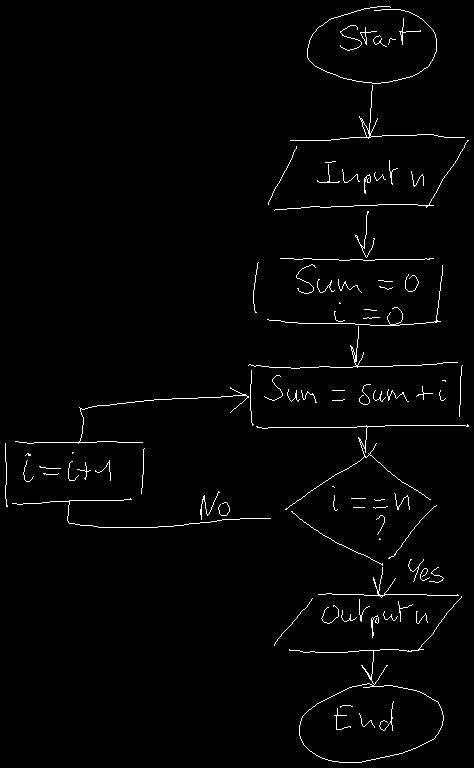 Start
Input n
Sum = 0
i = 0
Sum = sum + i
i = i+1
No
i == n
?
Yes
Output n
End